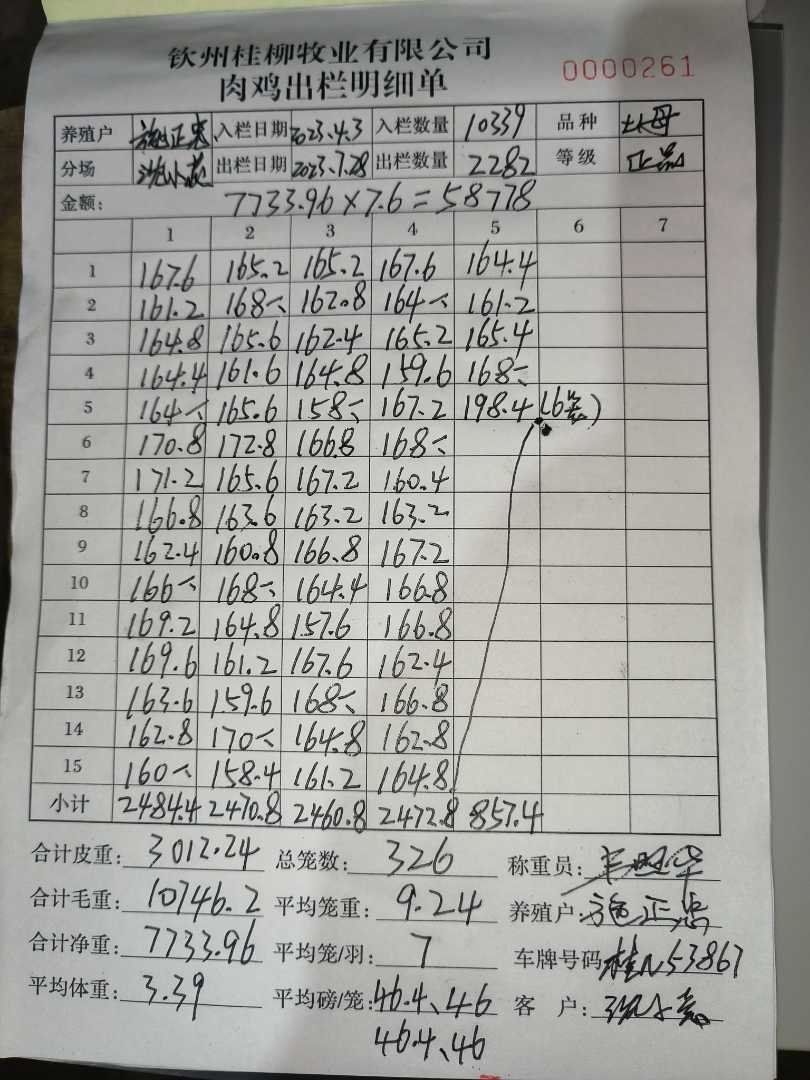 钦州桂柳牧业有限公司
肉鸡出栏明细单 0000261
养殖户 施正忠 入栏日期 2023.4.3 入栏数量 10339 品种 土母
分场 出栏日期 2023.7.28 出栏数量 2282 等级 正品
金额: 7733.96×7.6=58778
1 2 3 4 5 6 7
1 167.6 165.2 165.2 167.6 164.4
2 161.2 168 162.8 164 161.2
3 164.8 165.6 162.4 165.2 165.4
4 164.4 161.6 164.8 159.6 168
5 164 165.6 158 167.2 198.4(6笼)
6 170.8 172.8 166.8 168
7 171.2 165.6 167.2 160.4
8 166.8 163.6 163.2 163.2
9 162.4 160.8 166.8 167.2
10 166 168 164.4 166.8
11 169.2 164.8 157.6 166.8
12 169.6 161.2 167.6 162.4
13 163.6 159.6 168 166.8
14 162.8 170 164.8 162.8
15 160 158.4 161.2 164.8
小计 2484.4 2470.8 2460.8 2472.8 857.4
合计皮重: 3012.24 总笼数: 326 称重员:
合计毛重: 10746.2 平均笼重: 9.24 养殖户: 施正忠
合计净重: 7733.96 平均笼/羽: 7 车牌号码 桂N53867
平均体重: 3.39 平均磅/笼: 46.4、46 客 户:
46.4、46